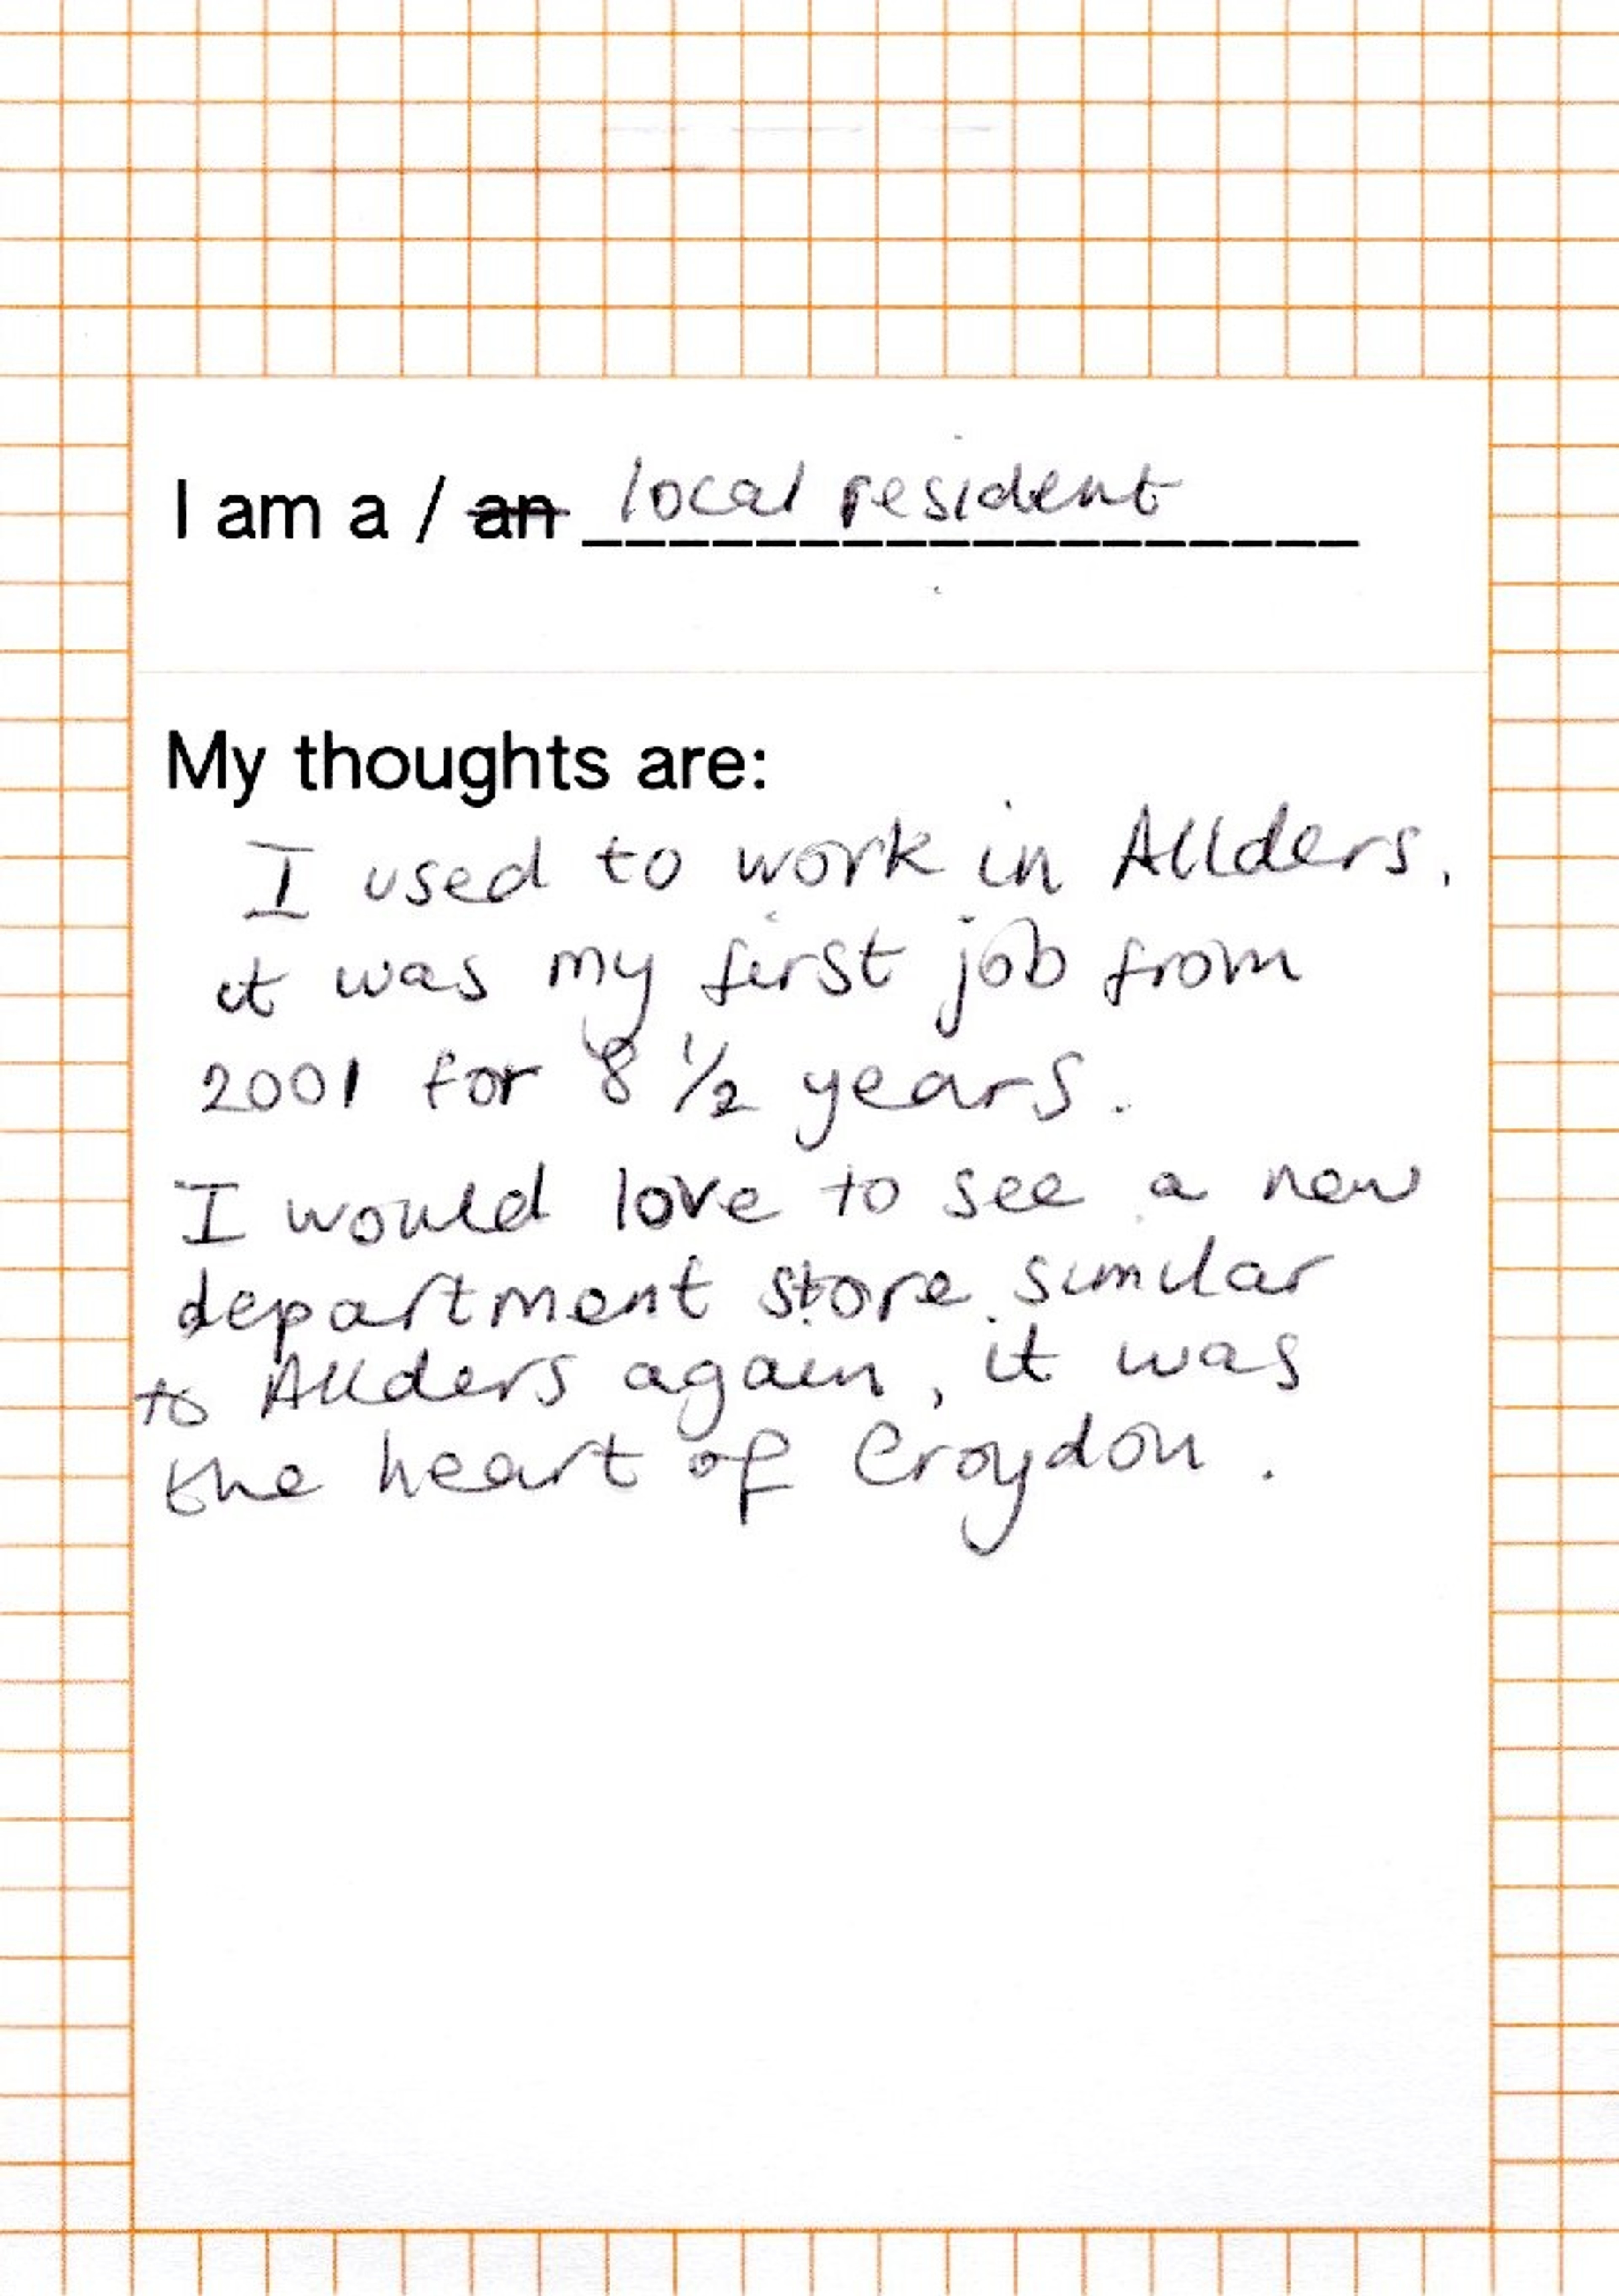 I am a / an local resident
My thoughts are:
I used to work in Allders.
it was my first job from
2001 for 8 1/2 years.
I would love to see a new
department store similar
to Allders again, it was
the heart of Croydon.